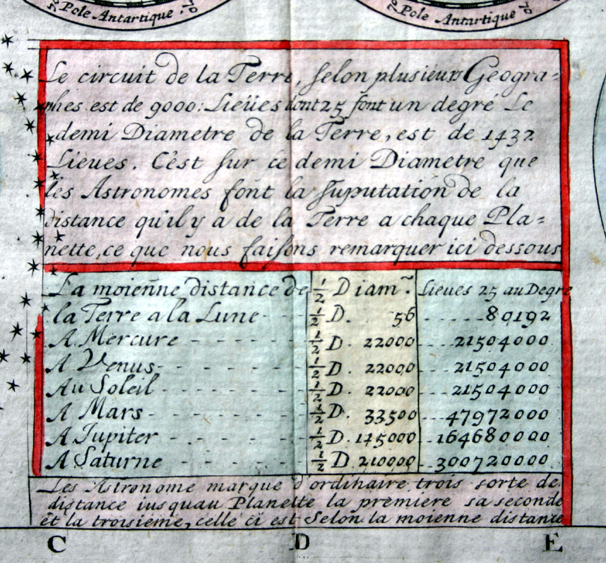 Pole Antartique
Pole Antartique
Le circuit de la Terre, selon plusieurs Geogra-
phes est de 9000. Lieües dont 25 font un degré Le
demi Diametre de la Terre, est de 1432
Lieues. C'est sur ce demi Diametre que
les Astronomes font la suputation de la
distance qu'il y a de la Terre a chaque Pla=
nette, ce que nous faisons remarquer ici dessous
La moienne distance de ½ Diam.re Lieues 25 au Degre
la Terre a la Lune ½ D. 56 80192
A Mercure ½ D. 22000 21504000
A Venus ½ D. 22000 21504000
Au Soleil ½ D. 22000 21504000
A Mars ½ D. 33500 47972000
A Jupiter ½ D. 115000 164680000
A Saturne ½ D. 210000 300720000
Les Astronome marque d'ordinaire trois sorte de
distance iusquau Planette la premiere sa seconde
et la troisieme, celle ci est Selon la moienne distance
C D E